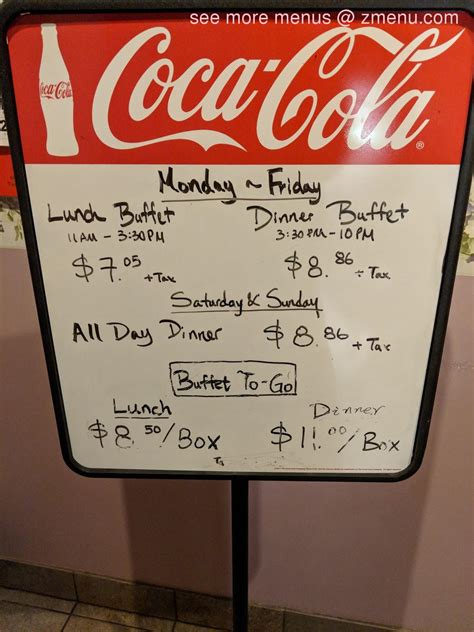 see more menus @ zmenu.com
Coca-Cola
Coca-Cola
Monday ~ Friday
Lunch Buffet
11AM - 3:30PM
$7.05 + Tax
Dinner Buffet
3:30PM - 10PM
$8.86 + Tax
Saturday & Sunday
All Day Dinner $8.86 + Tax
Buffet To-Go
Lunch
$8.50/Box
Dinner
$11.00/Box